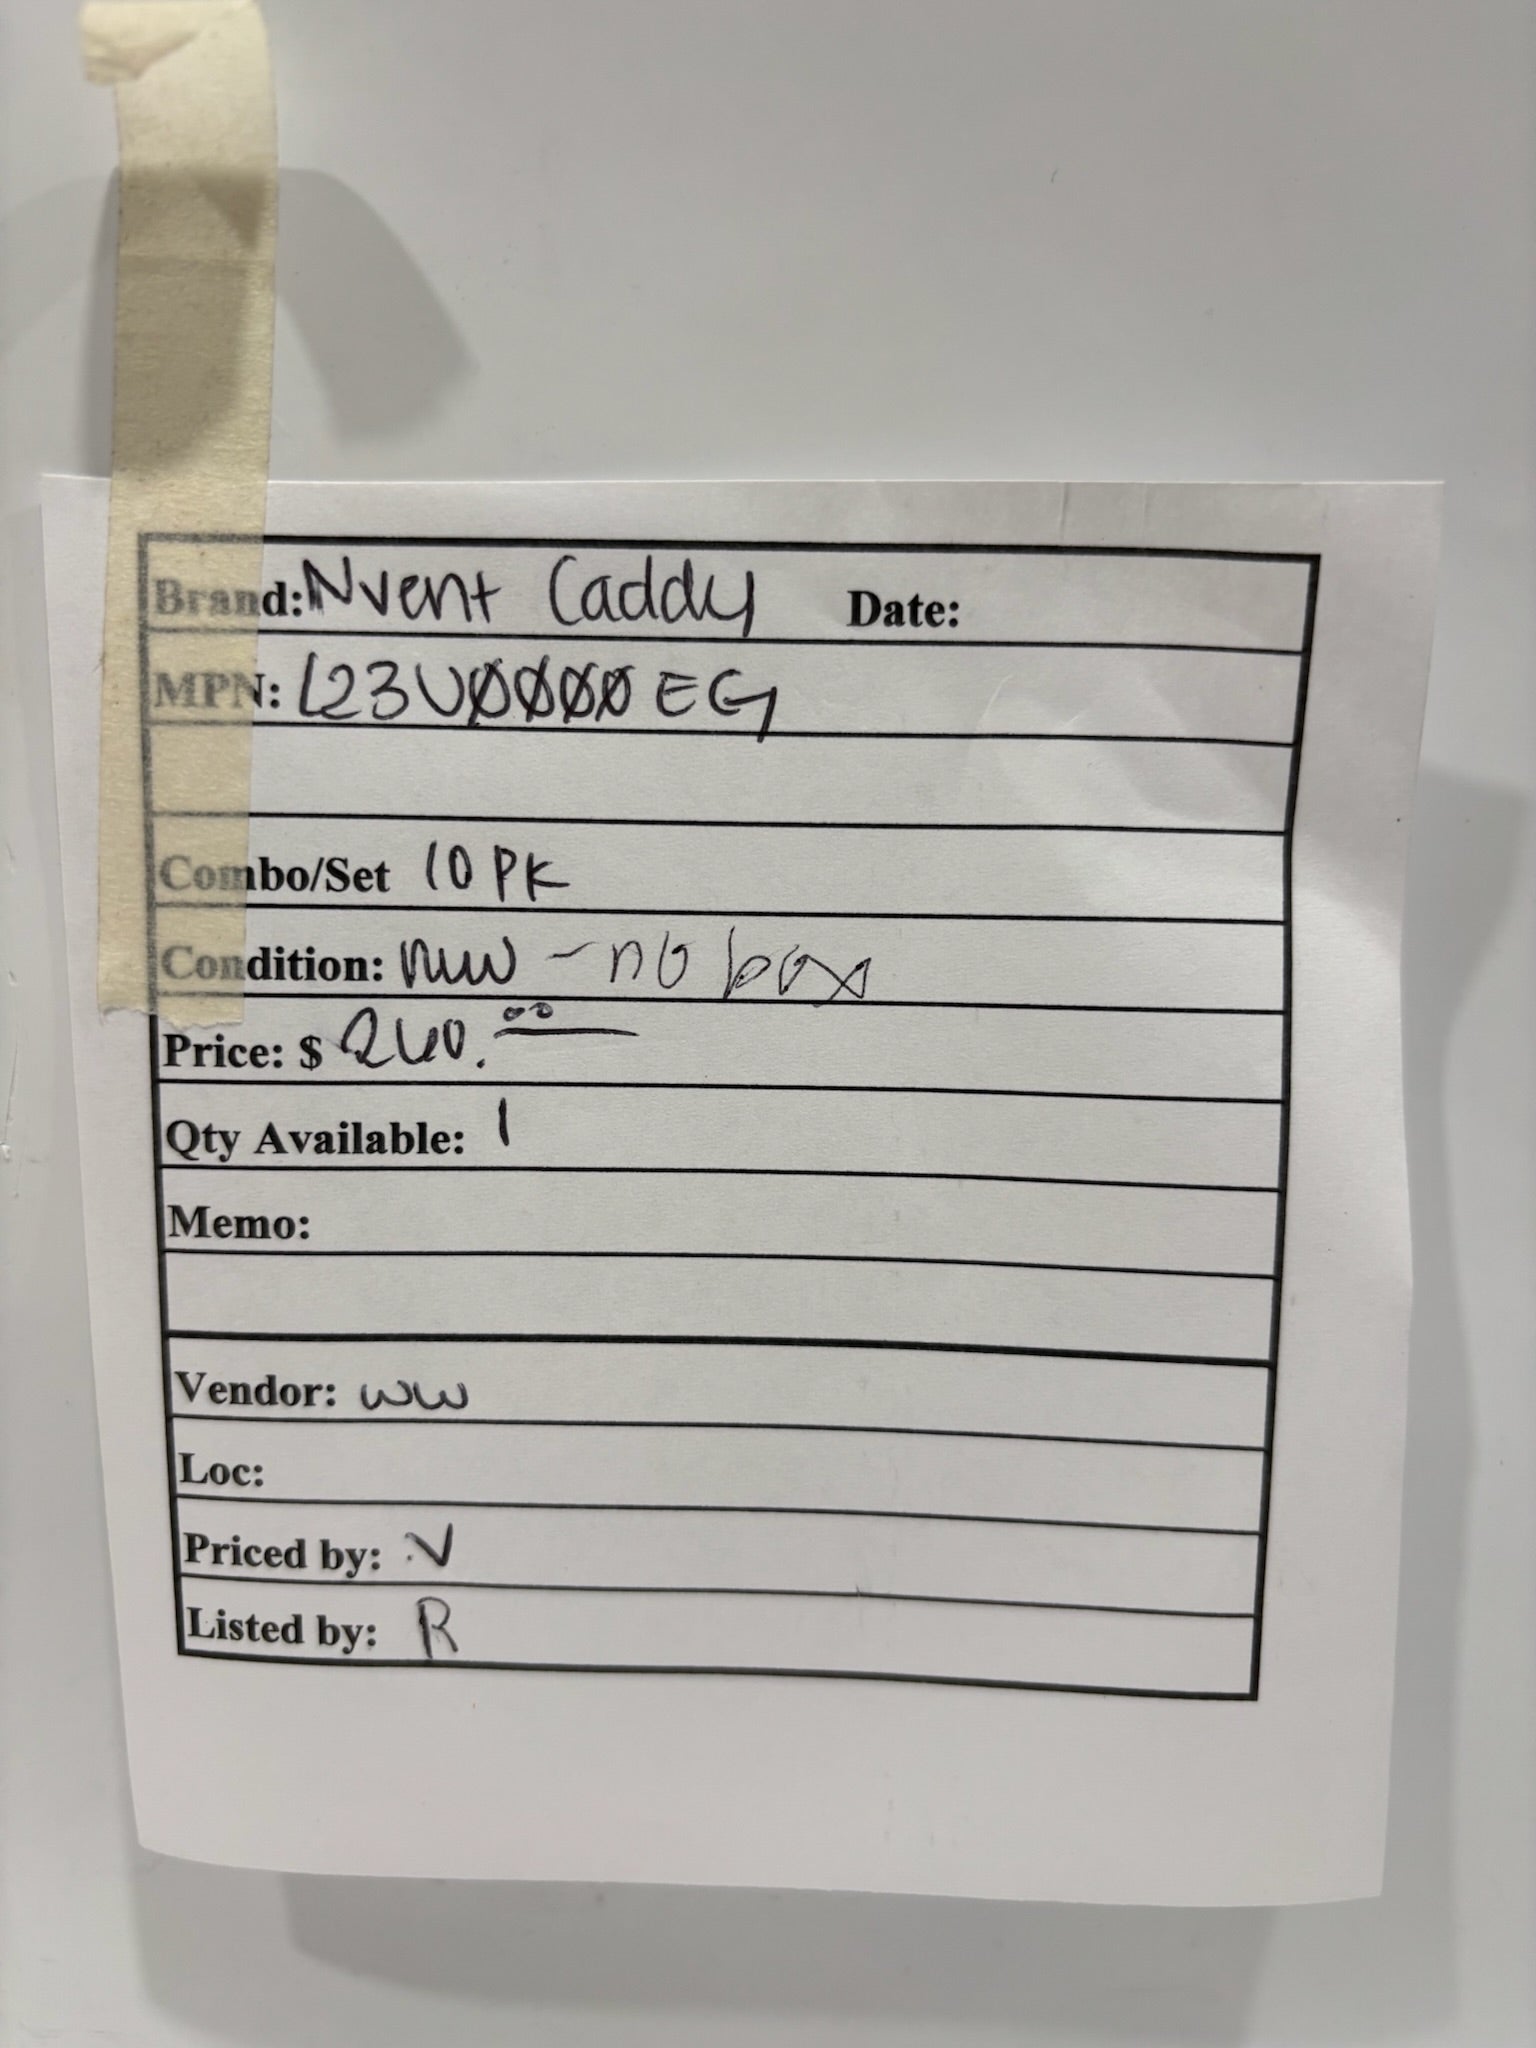 Brand: Nvent Caddy Date:
MPN: L23V0000EG
Combo/Set 10 PK
Condition: new - no box
Price: $ 260.00
Qty Available: 1
Memo:
Vendor: WW
Loc:
Priced by: V
Listed by: R